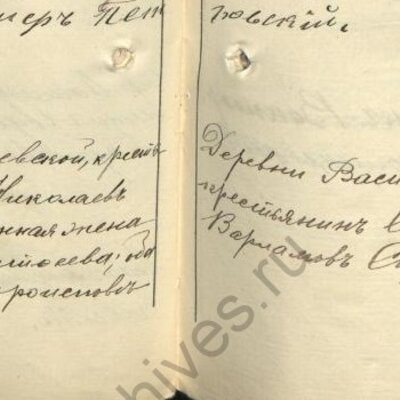 меръ Пет
евской, кресть
Николаевъ
нная жена
; оба
православ
ровскій.
Деревни Васи
крестьянинъ
Варламовъ
hives.ru